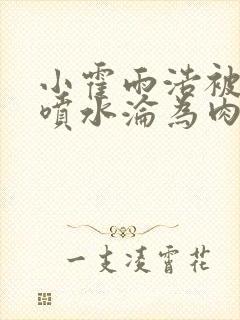 小霍雨浩被
噴水淪為肉
一支凌霄花